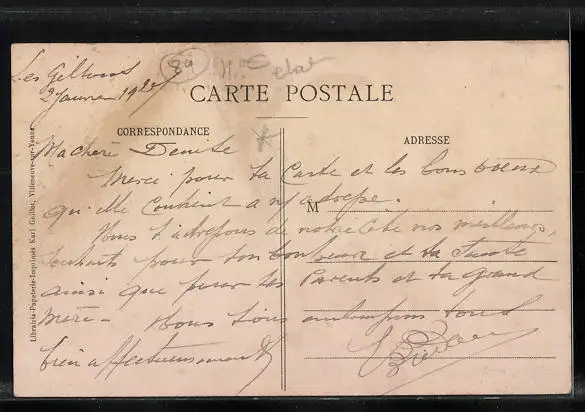 Les Giltons
2 Janvier 192
89
CARTE POSTALE
CORRESPONDANCE
ADRESSE
Ma chère Denise
Merci pour ta Carte et les bons voeux
qu'elle contient à n/ adresse.
M
Nous t'adressons de notre côté nos meilleurs
souhaits pour ton bonheur et ta Santé
ainsi que pour tes Parents et ta Grand
Mère - Nous vous embrassons tous
bien affectueusement
Librairie-Papeterie-Imprimés Karl Guillot, Villeneuve-sur-Yonne